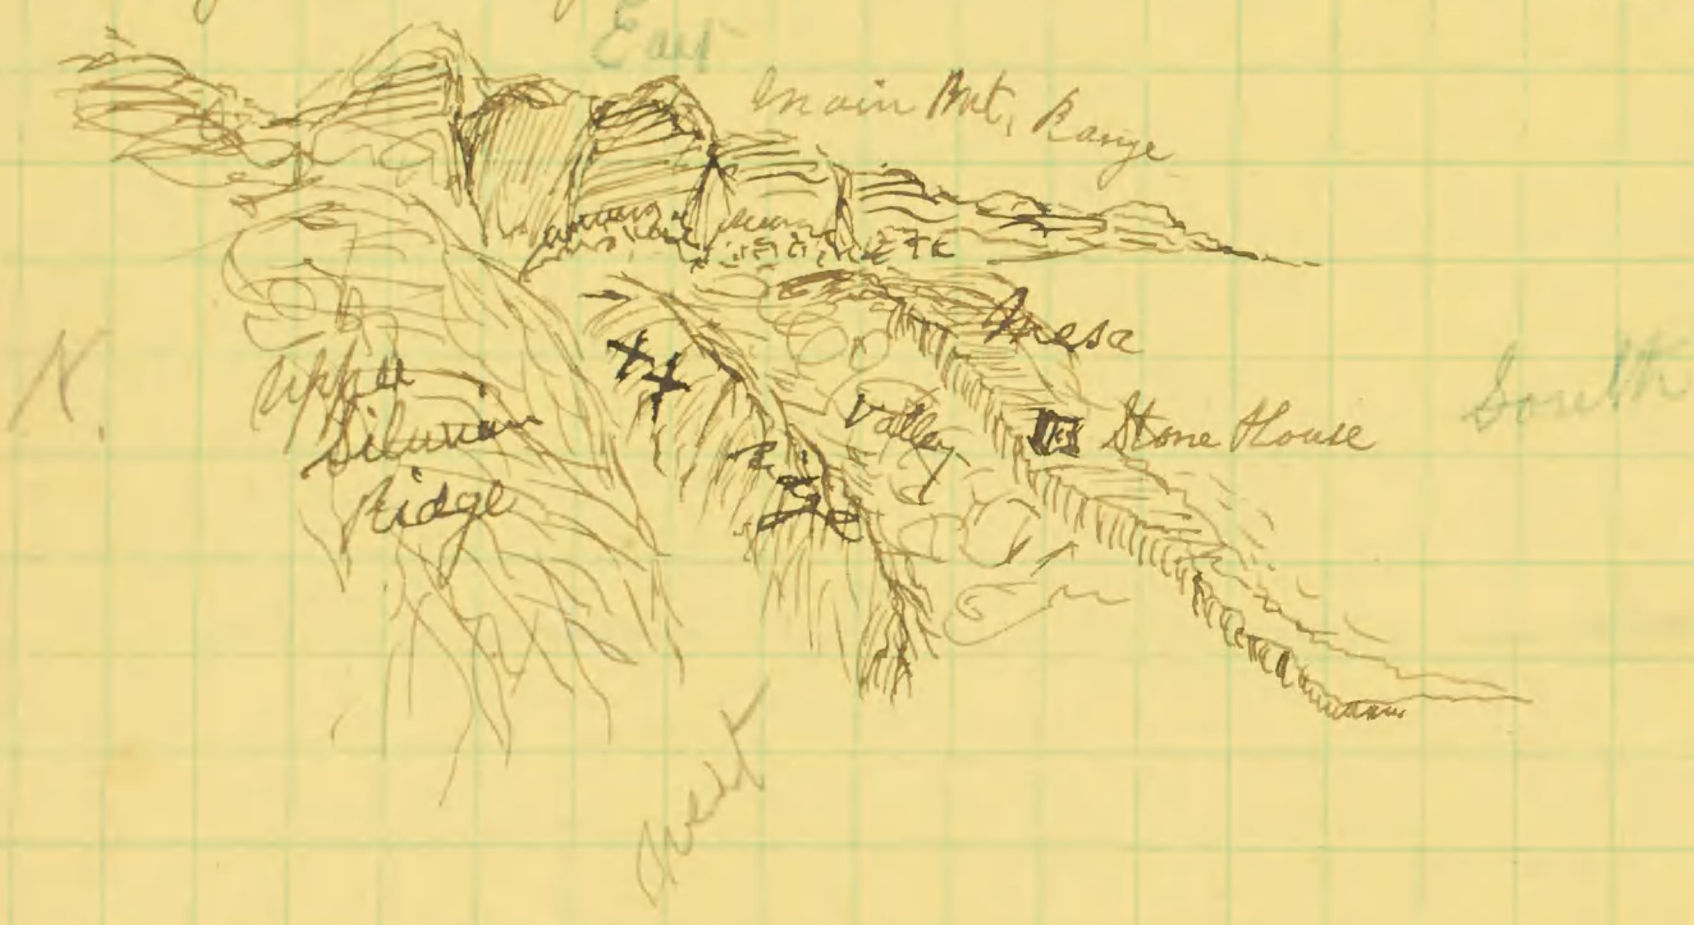 East
Main Mt. Range
Mesa
N.
South
Upper
Silurian
Ridge
XX
Valley
Stone House
West